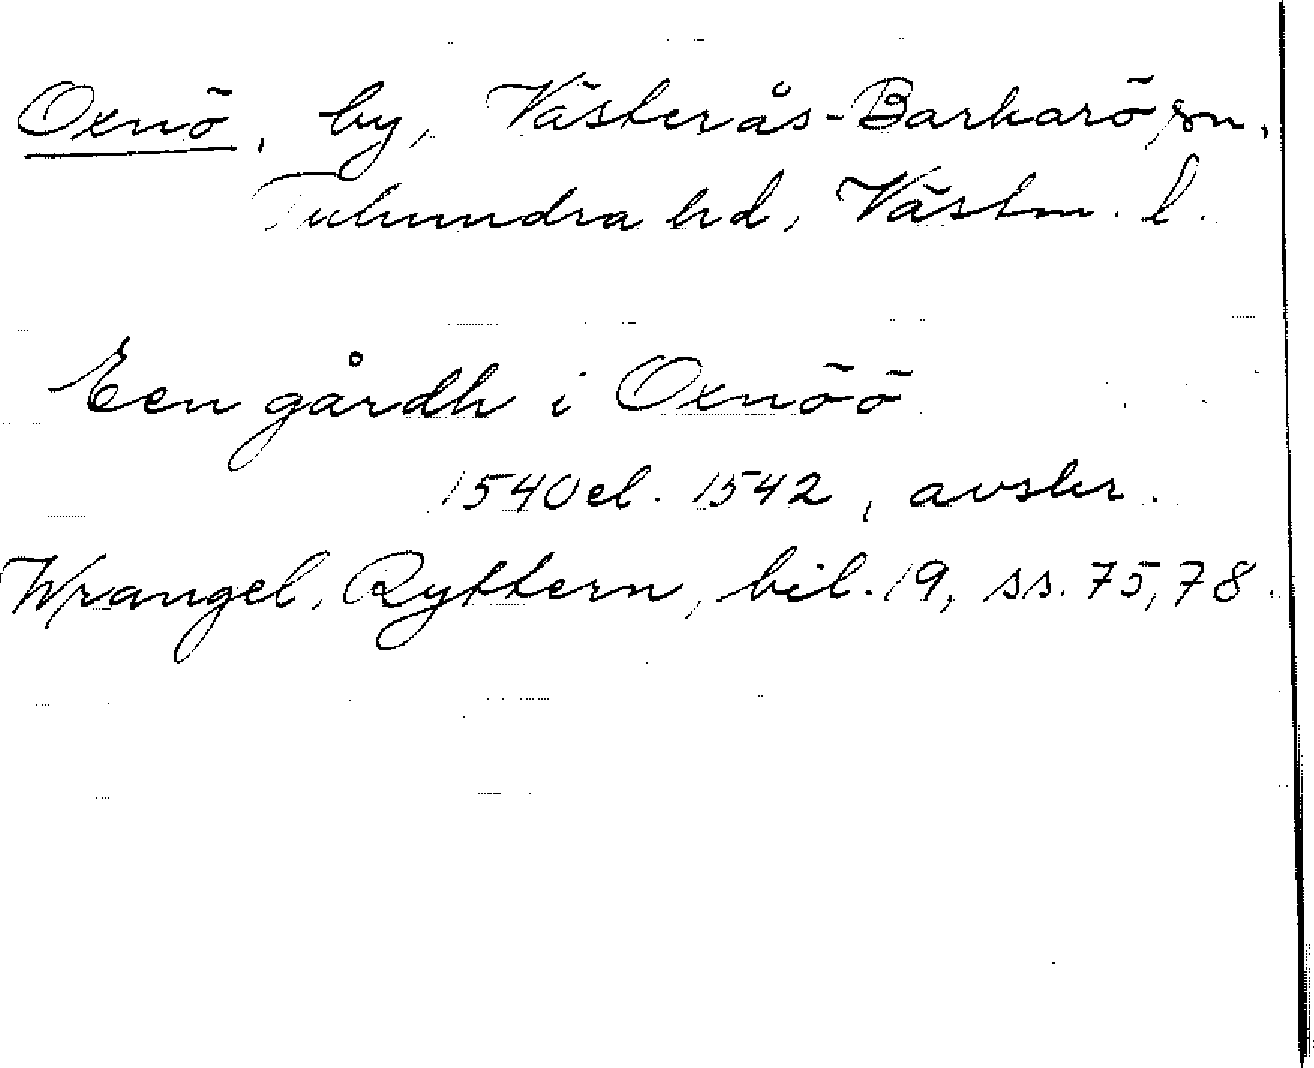 Oxnö, by, Västerås-Barkarö sn,
Tuhundra hd, Västm. l.
Een gårdh i Oxnöö
1540 el. 1542, avskr.
Wrangel, Ryttern, bil. 19, ss. 75, 78.